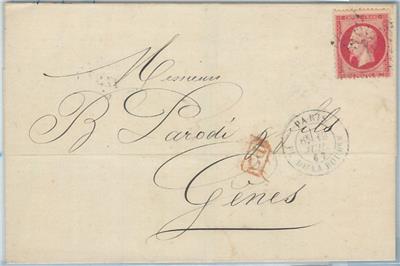 EMPIRE FRANC
Messieurs
B Parodi & fils
PD
PARIS
67
Gênes